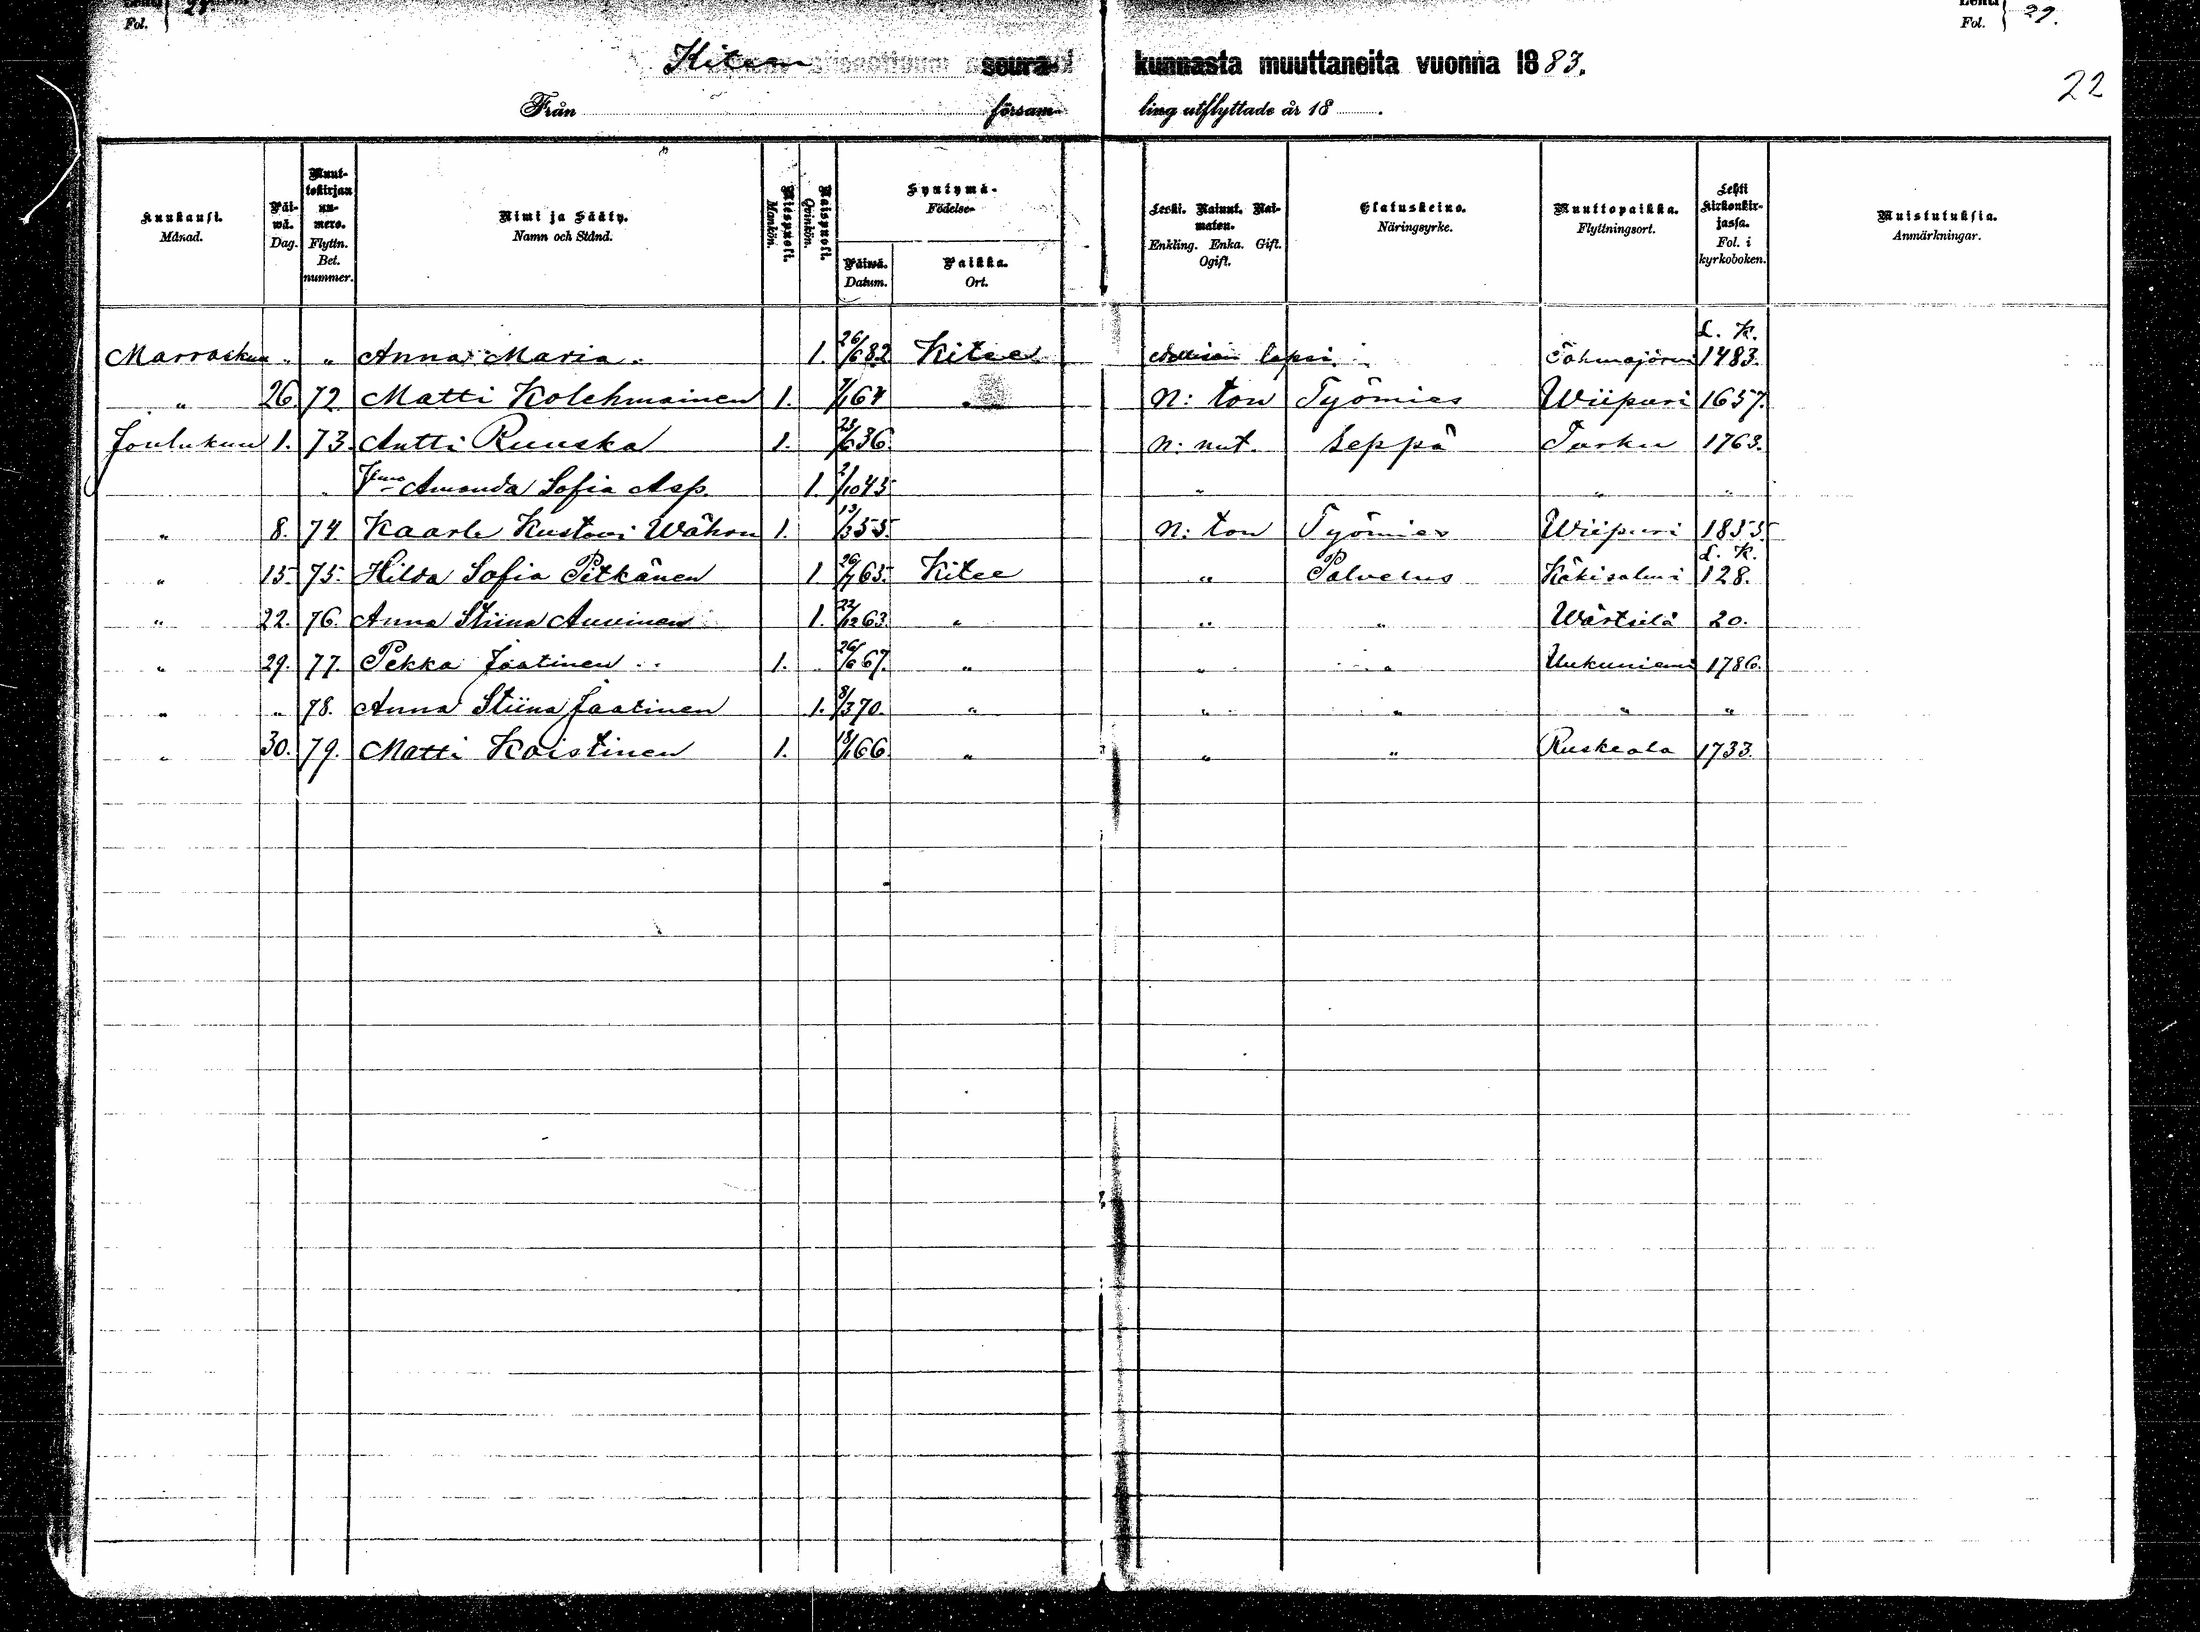 Fol. 29.
Fol. 29.
Kiteen seura-kunnasta muuttaneita vuonna 1883.
22
Från försam-ling utflyttade år 18 .
Kuukausi. Månad.
Päiwä. Dag.
Muuttokirjan numero. Flyttn. Bet. nummer.
Nimi ja Sääty. Namn och Stånd.
Miespuoli. Mankön.
Naispuoli. Qvinkön.
Syntymä- Födelse-
Päiwä. Datum.
Paikka. Ort.
Leski. Nainut. Naimaton. Enkling. Enka. Gift. Ogift.
Elatuskeino. Näringsyrke.
Muuttopaikka. Flyttningsort.
Lehti Kirkonkirjassa. Fol. i kyrkoboken.
Muistutuksia. Anmärkningar.
L. K.
Marraskuu " " Anna Maria 1. 26/6 82 Kitee lapsi Tohmajärvi 1483.
" 26 72 Matti Kolehmainen 1. 7/1 64 " N: ton Työmies Wiipuri 1657.
Joulukuu 1. 73. Antti Ruuska 1. 23/6 36. N: nut. Seppä Turku 1763.
Amanda Sofia Asp. 1. 2/10 45 " " "
" 8. 74 Kaarle Kustavi 1. 13/3 55. N: ton Työmies Wiipuri 1855
L. K.
" 15 75. Hilda Sofia Pitkänen 1 26/7 65. Kitee " Palvelus Käkisalmi 128.
" 22. 76. Anna Stiina Auvinen 1. 22/12 63. " " " Wärtsilä 20.
" 29. 77. Pekka Jaatinen 1. 26/6 67. " " " Uukuniemi 1786.
" " 78. Anna Stiina Jaatinen 1. 8/3 70. " " " " "
" 30. 79. Matti Koistinen 1. 18/1 66. " " " Ruskeala 1733.